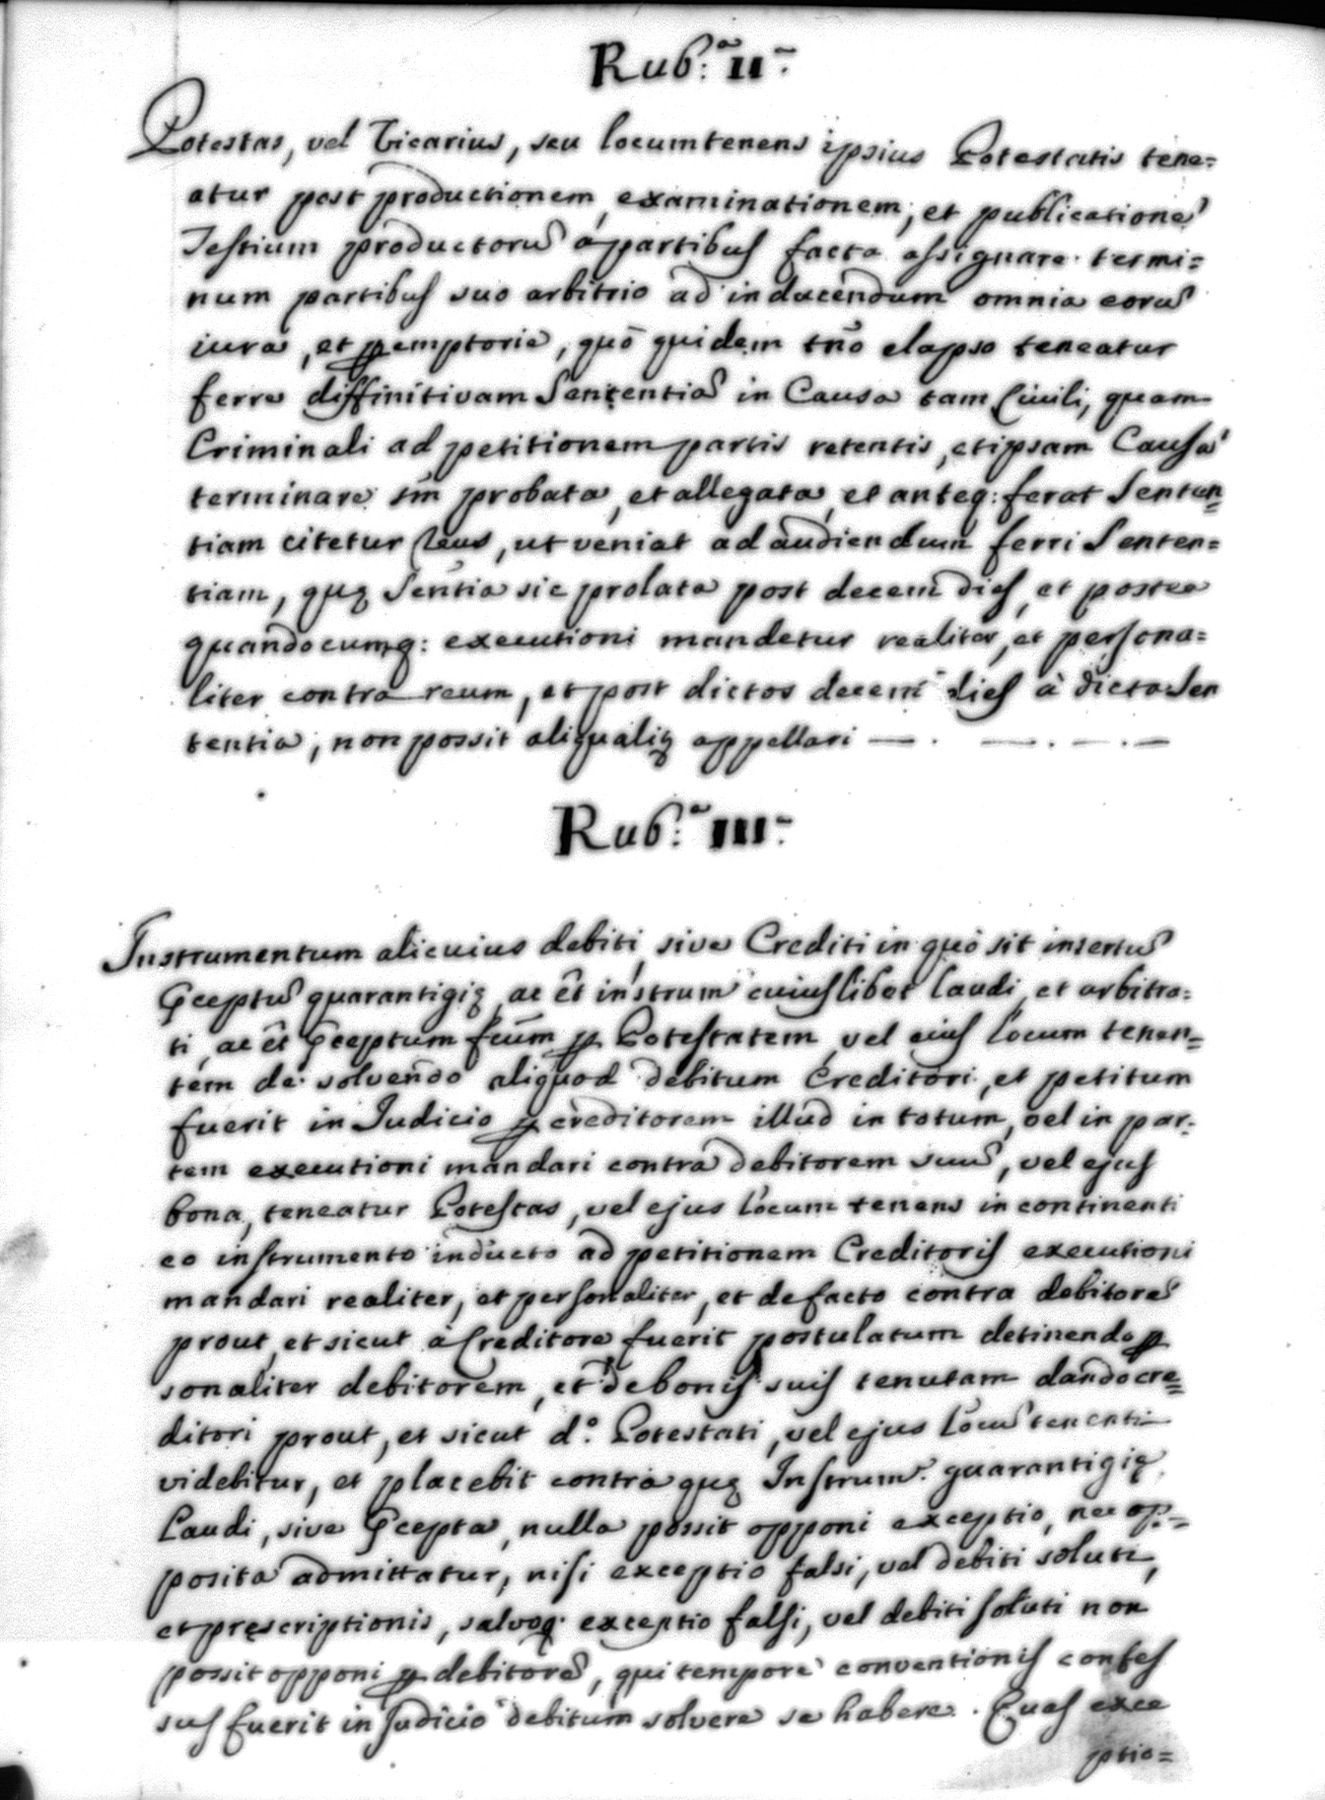 Rub:ᵃ IIᵃ.
Potestas, vel Vicarius, seu locumtenens ipsius Potestatis tene=
atur post productionem, examinationem, et publicatione᷃
Testium productoru᷃ à partibus facta assignare termi=
num partibus suo arbitrio ad inducendum omnia eoru᷃
iura, et ꝑemptorie, quo quidem tño elapso teneatur
ferre diffinitivam Sententia᷃ in Causa tam Civili, quam
Criminali ad petitionem partis retentis, et ipsam Causa᷃
terminare sm̃ probata, et allegata, et anteq: ferat Senten=
tiam citetur Reus, ut veniat ad audiendum ferri Senten=
tiam, quę Sentia sic prolata post decem dies, et postea
quandocumq: executioni mandetur realiter, et persona=
liter contra reum, et post dictos decem dies à dicta Sen
tentia, non possit aliqualiꝫ appellari — . — . — . —
Rub:ᵃ IIIᵃ.
Instrumentum alicuius debiti, sive Crediti in quo sit insertu᷃
Pceptu᷃ quarantigię, ac et̃ instrum cuiuslibet laudi, et arbitra=
ti, ac et̃ Pceptum fcũm ꝑ Potestatem, vel eius locum tenen=
tem de solvendo aliquod debitum Creditori, et petitum
fuerit in Iudicio ꝑ creditorem illud in totum, vel in par=
tem executioni mandari contra debitorem suu᷃, vel ejus
bona, teneatur Potestas, vel ejus locum tenens in continenti
eo instrumento inducto ad petitionem Creditoris executioni
mandari realiter, et personaliter, et de facto contra debitore᷃
prout, et sicut à Creditore fuerit postulatum detinendo ꝑ
sonaliter debitorem, et de bonis suis tenutam dando cre=
ditori prout, et sicut d.º Potestati, vel ejus locu᷃ tenenti
videbitur, et placebit contra quę Instrum. guarantigię
Laudi, sive Pcepta, nulla possit opponi exceptio, nec op=
posita admittatur, nisi exceptio falsi, vel debiti soluti,
et pręscriptionis, salvoq. exceptio falsi, vel debiti soluti non
possit opponi ꝑ debitore᷃, qui tempore conventionis confes
sus fuerit in Judicio debitum solvere se habere. Quas exce
ptio=